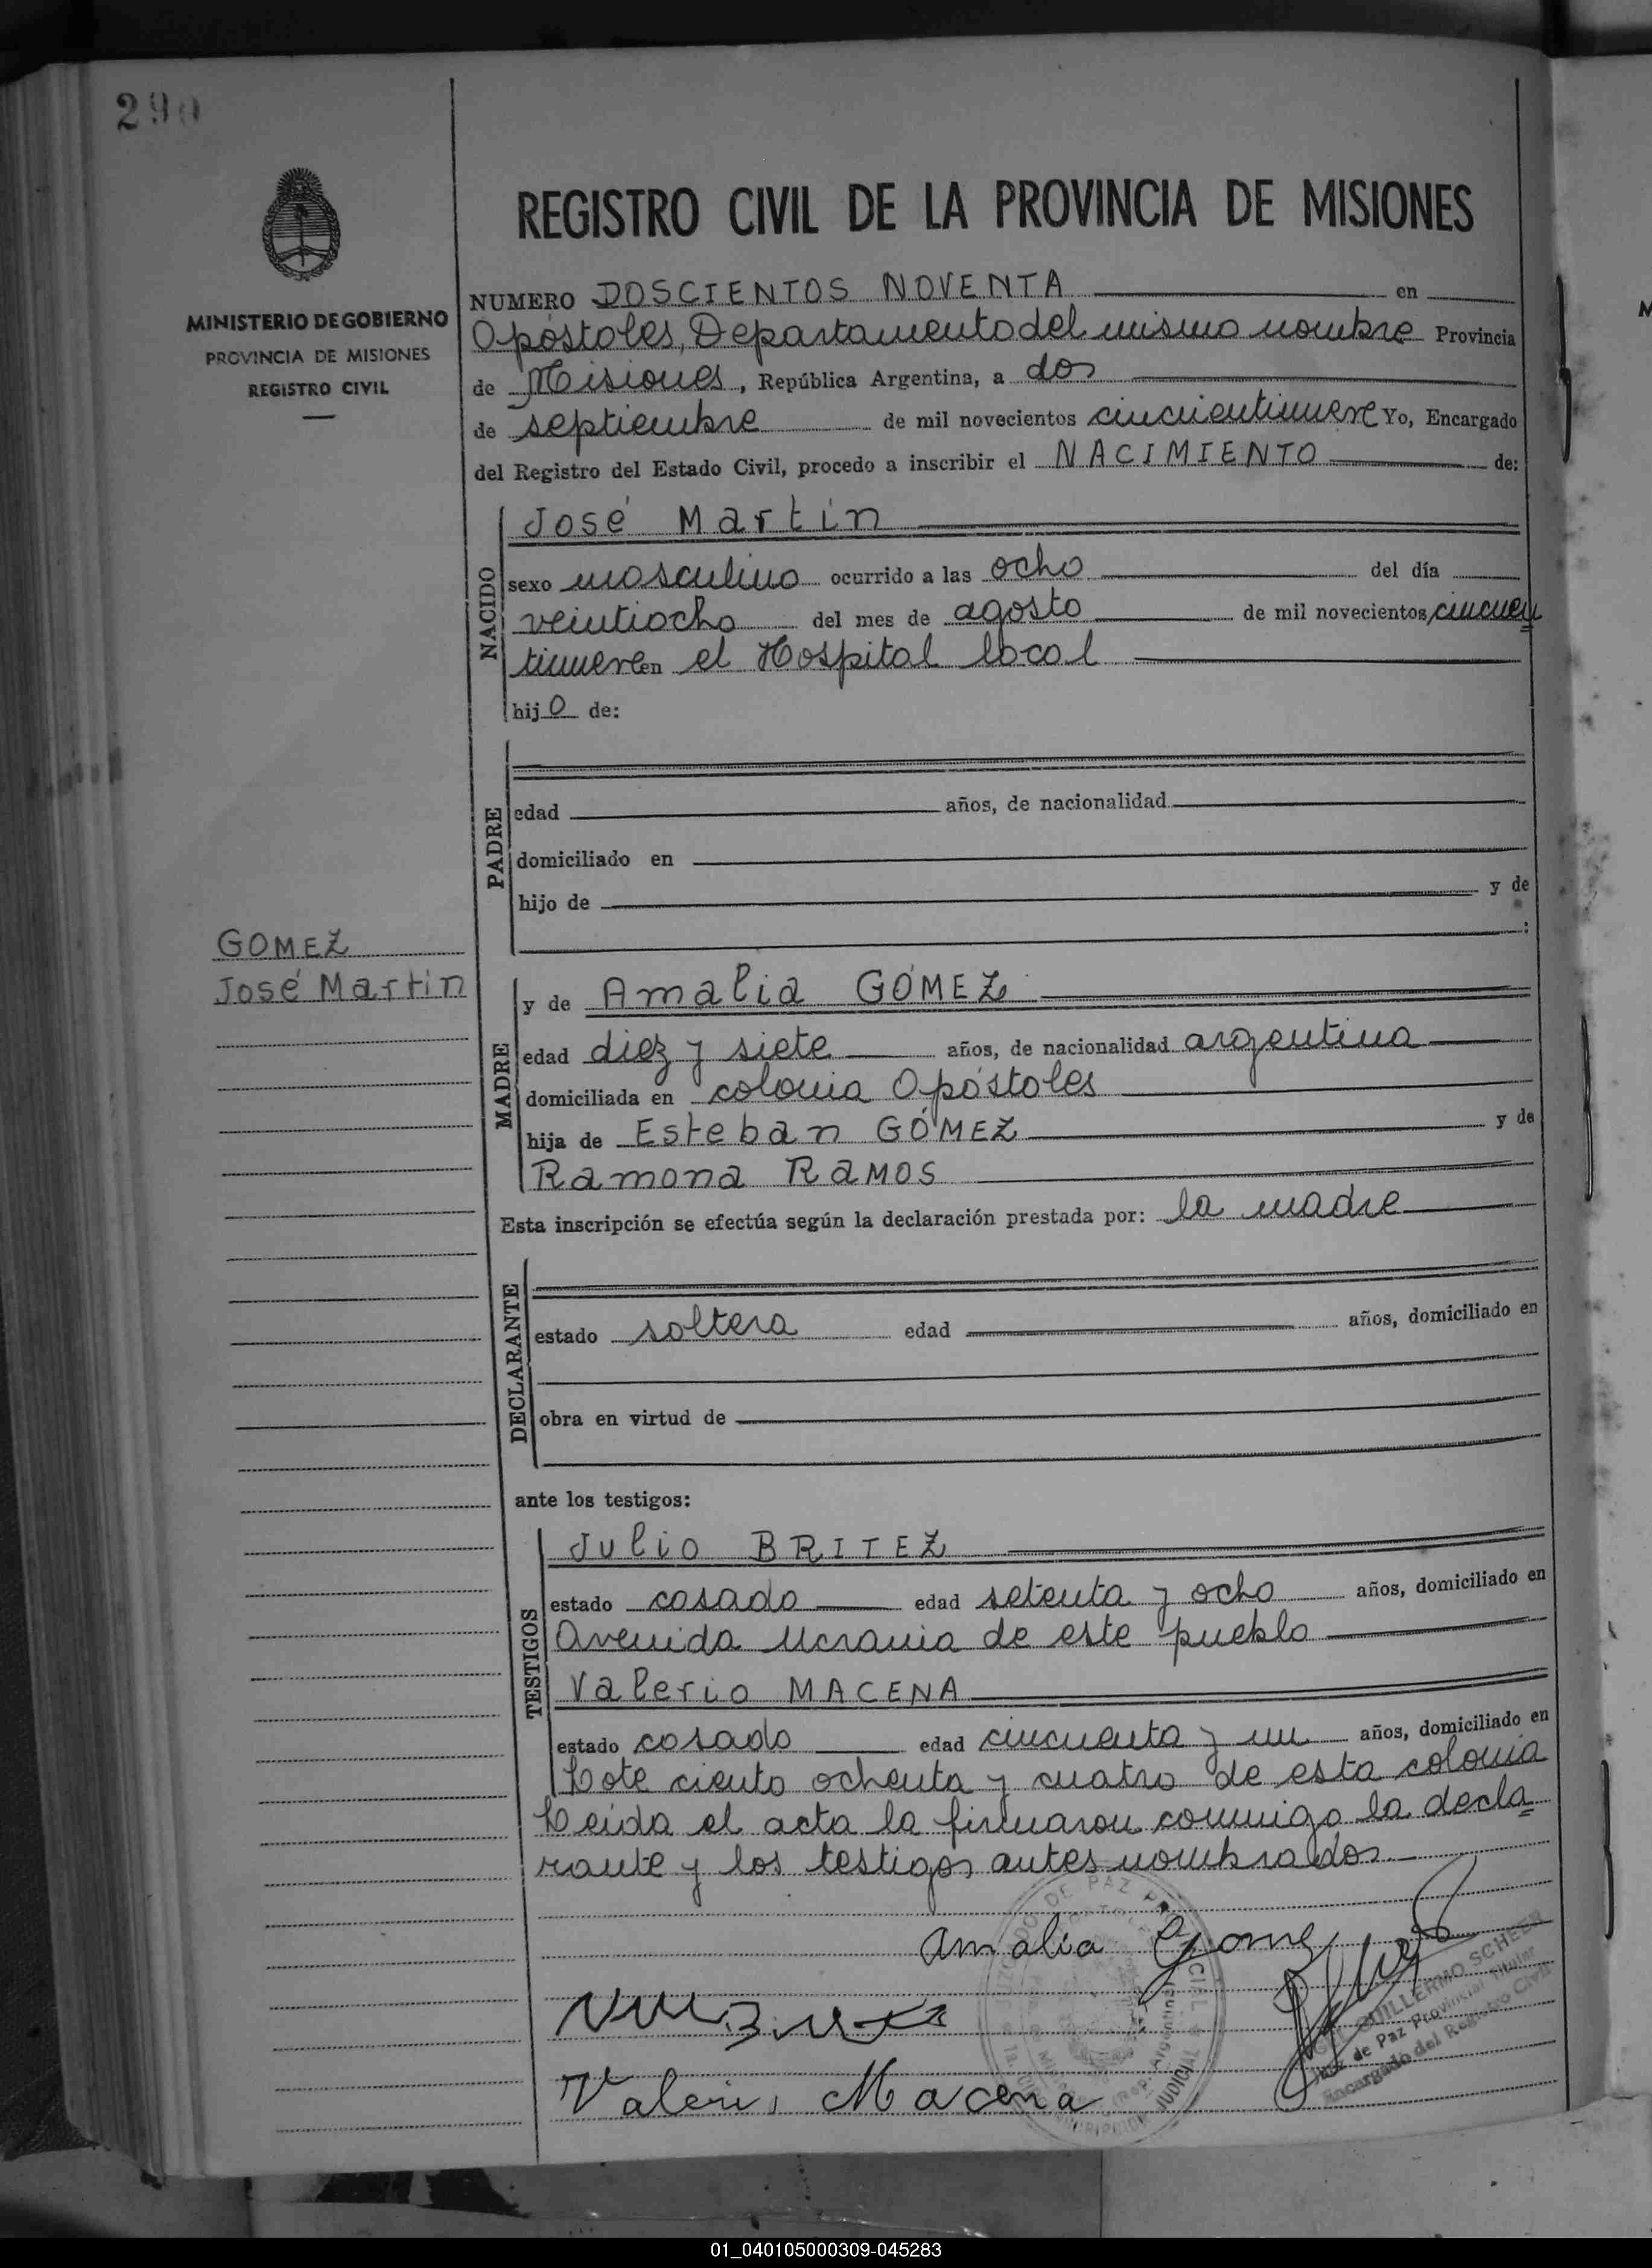 290
MINISTERIO DE GOBIERNO
PROVINCIA DE MISIONES
REGISTRO CIVIL
REGISTRO CIVIL DE LA PROVINCIA DE MISIONES
NUMERO DOSCIENTOS NOVENTA en
Apóstoles, Departamento del mismo nombre Provincia
de Misiones, República Argentina, a dos
de septiembre de mil novecientos cincuentinueve Yo, Encargado
del Registro del Estado Civil, procedo a inscribir el NACIMIENTO de:
NACIDO
José Martín
sexo masculino ocurrido a las ocho del día
veintiocho del mes de agosto de mil novecientos cincuen
tinueve en el Hospital local
hijo de:
PADRE
edad años, de nacionalidad
domiciliado en
hijo de y de
:
GOMEZ
José Martín
MADRE
y de Amalia GÓMEZ
edad diez y siete años, de nacionalidad argentina
domiciliada en colonia Apóstoles
hija de Esteban GÓMEZ y de
Ramona RAMOS
Esta inscripción se efectúa según la declaración prestada por: la madre
DECLARANTE
estado soltera edad años, domiciliado en
obra en virtud de
ante los testigos:
TESTIGOS
Julio BRITEZ
estado casado edad setenta y ocho años, domiciliado en
Avenida Ucrania de este pueblo
Valerio MACENA
estado casado edad cincuenta y un años, domiciliado en
Lote ciento ochenta y cuatro de esta colonia
Leída el acta la firmaron conmigo la decla=
rante y los testigos antes nombrados.
Amalia Gomez
Valerio Macena
JUZGADO DE PAZ
GUILLERMO SCHEER
Juez de Paz Provincial Titular
Encargado del Registro Civil
01_040105000309-045283